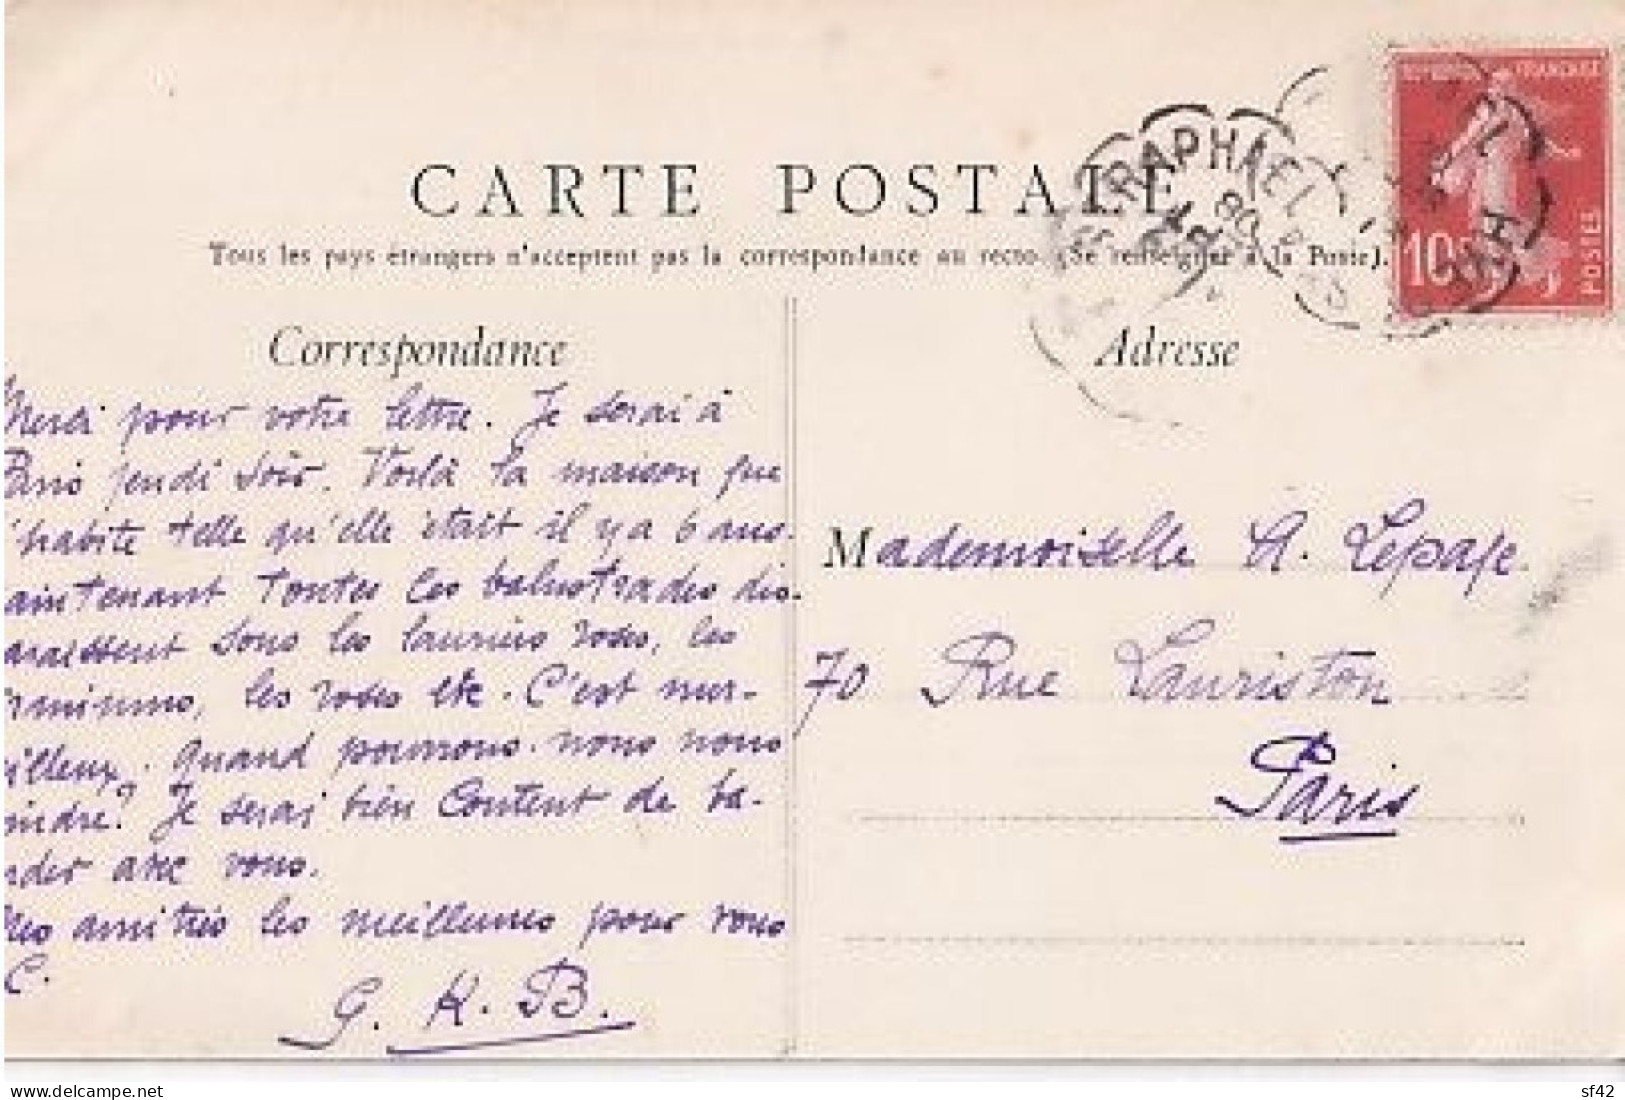 CARTE POSTALE
Tous les pays étrangers n'acceptent pas la correspondance au recto. (Se renseigner à la Poste).
Correspondance
Merci pour votre lettre. Je serai à
Paris jeudi soir. Voilà la maison que
j'habite telle qu'elle était il y a 6 ans.
aintenant toutes les balustrades dis-
araissent sous les lauriers roses, les
raniums, les roses etc. C'est mer-
eilleux. Quand pourrons-nous nous
indre? Je serai bien content de ba-
der avec vous.
Mes amitiés les meilleures pour vous
C.
G. K. B.
RAPHAEL
REPUBLIQUE FRANÇAISE
10
POSTES
Adresse
Mademoiselle A. Lepage
70 Rue Lauriston
Paris
https://www.delcampe.net
sf42